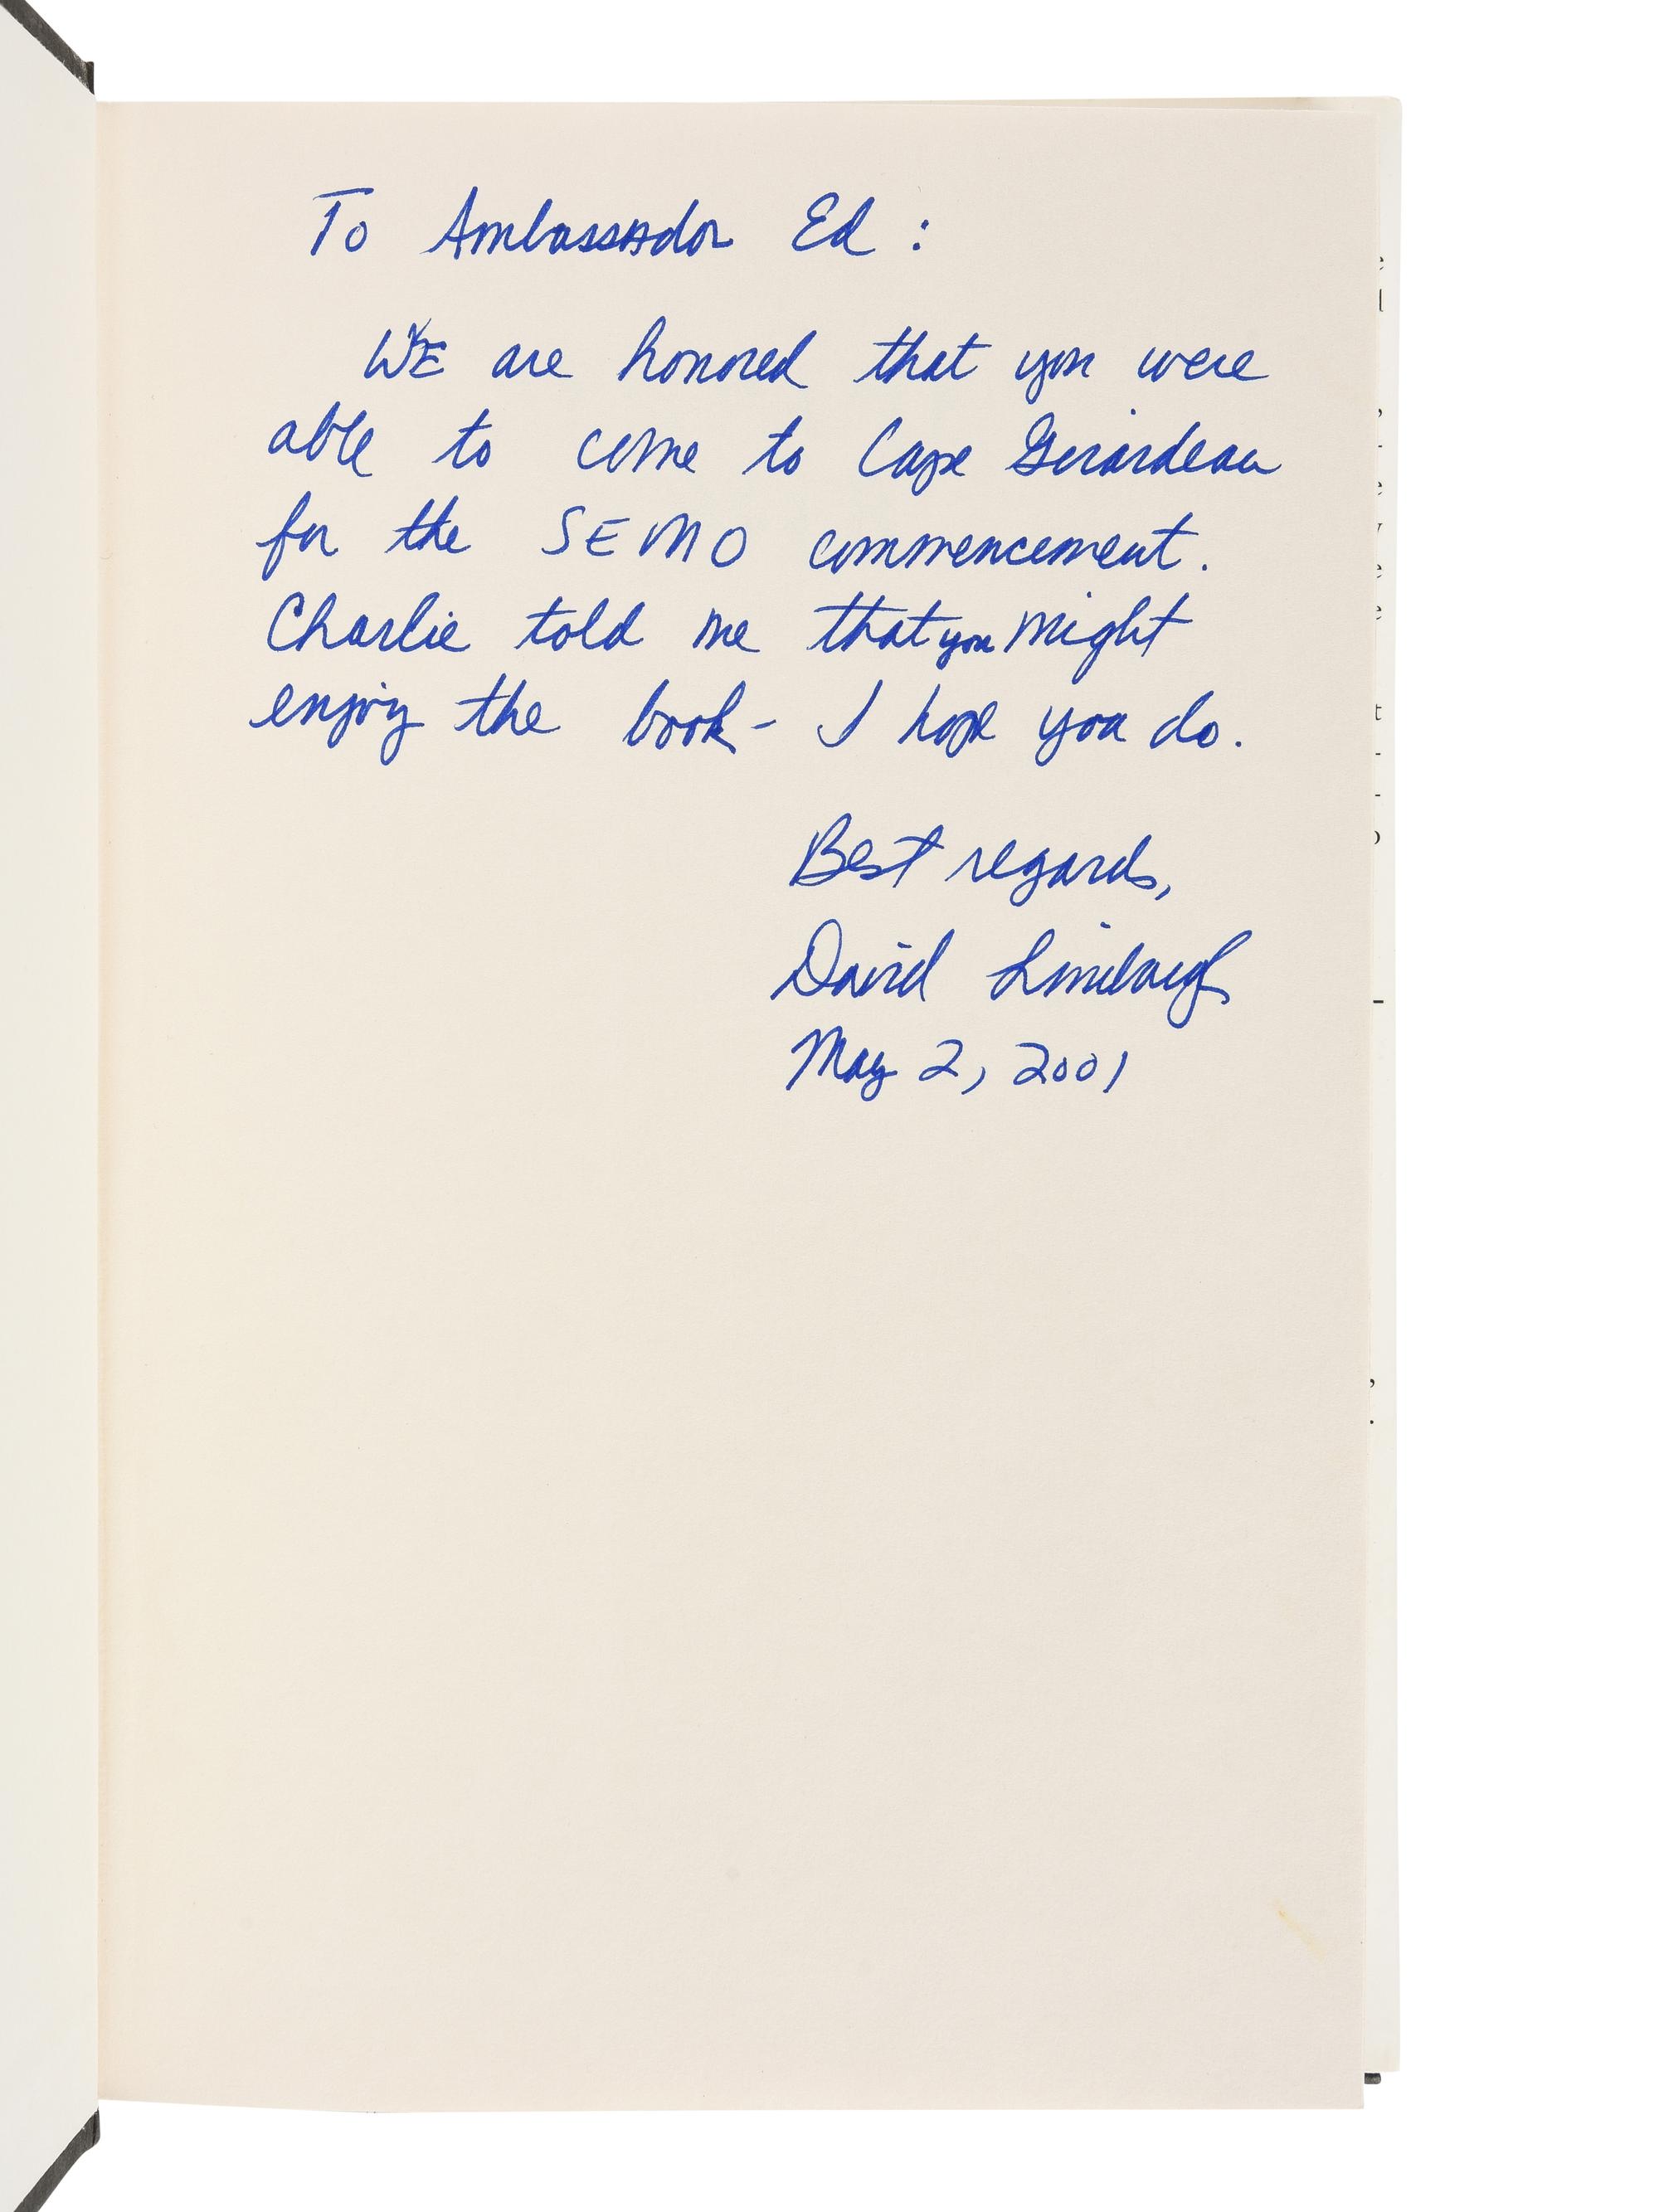 To Ambassador Ed :
WE are honored that you were
able to come to Cape Girardeau
for the SEMO commencement.
Charlie told me that you might
enjoy the book - I hope you do.
Best regards,
David Limbaugh
May 2, 2001